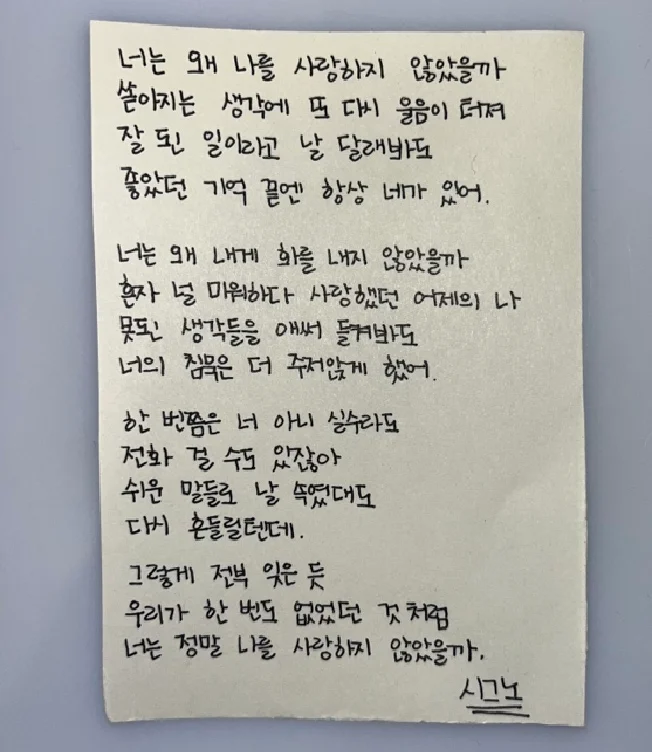 너는 왜 나를 사랑하지 않았을까
쏟아지는 생각에 또 다시 울음이 터져
잘 된 일이라고 날 달래봐도
좋았던 기억 끝엔 항상 네가 있어.
너는 왜 내게 화를 내지 않았을까
혼자 널 미워하다 사랑했던 어제의 나
못된 생각들을 애써 들켜봐도
너의 침묵은 더 주저앉게 했어.
한 번쯤은 너 아니 실수라도
전화 걸 수도 있잖아
쉬운 말들로 날 속였대도
다시 흔들릴텐데.
그렇게 전부 잊은 듯
우리가 한 번도 없었던 것처럼
너는 정말 나를 사랑하지 않았을까.
시그노